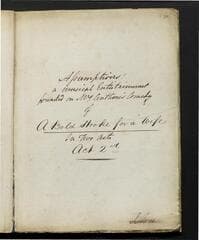 Assumptions.
a Musical Entertainment
founded on Mrs Centlivre's Comedy
of
A Bold Stroke for a Wife
In Two Acts
Act 2nd